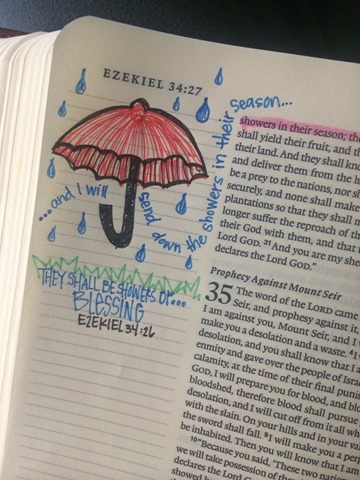 EZEKIEL 34:27
...and I will send down the showers in their season...
THEY SHALL BE SHOWERS OF...
BLESSING
EZEKIEL 34:26
showers in their season; th
shall yield their fruit, and th
And they shall kno
and deliver them from the h
be a prey to the nations, nor s
securely, and none shall make
plantations so that they shall
longer suffer the reproach of th
their God with them, and that
Lord GOD. 31 And you are my shee
declares the Lord GOD."
Prophecy Against Mount Seir
35 The word of the LORD came
against Mount Seir, and prophesy against it
I am against you, Mount Seir, and I
make you a desolation and a waste. 4 I
desolation, and you shall know that I a
enmity and gave over the people of Israe
calamity, at the time of their final punis
GOD, I will prepare you for blood, and blo
bloodshed, therefore blood shall pursue
desolation, and I will cut off from it all wh
with the slain. On your hills and in your va
the sword shall fall. 9 I will make you a per
be inhabited. Then you will know that I am
10 "Because you said, 'These two nation
we will take possession of the
declares the Lord G
showed